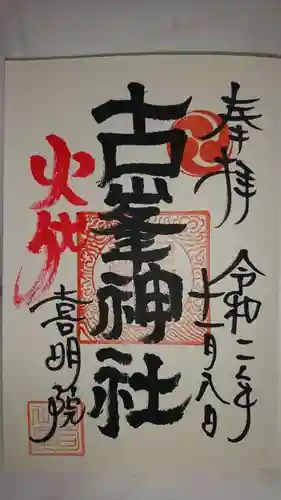 奉拝
令和二年
十一月八日
古峯神社
火
喜明院